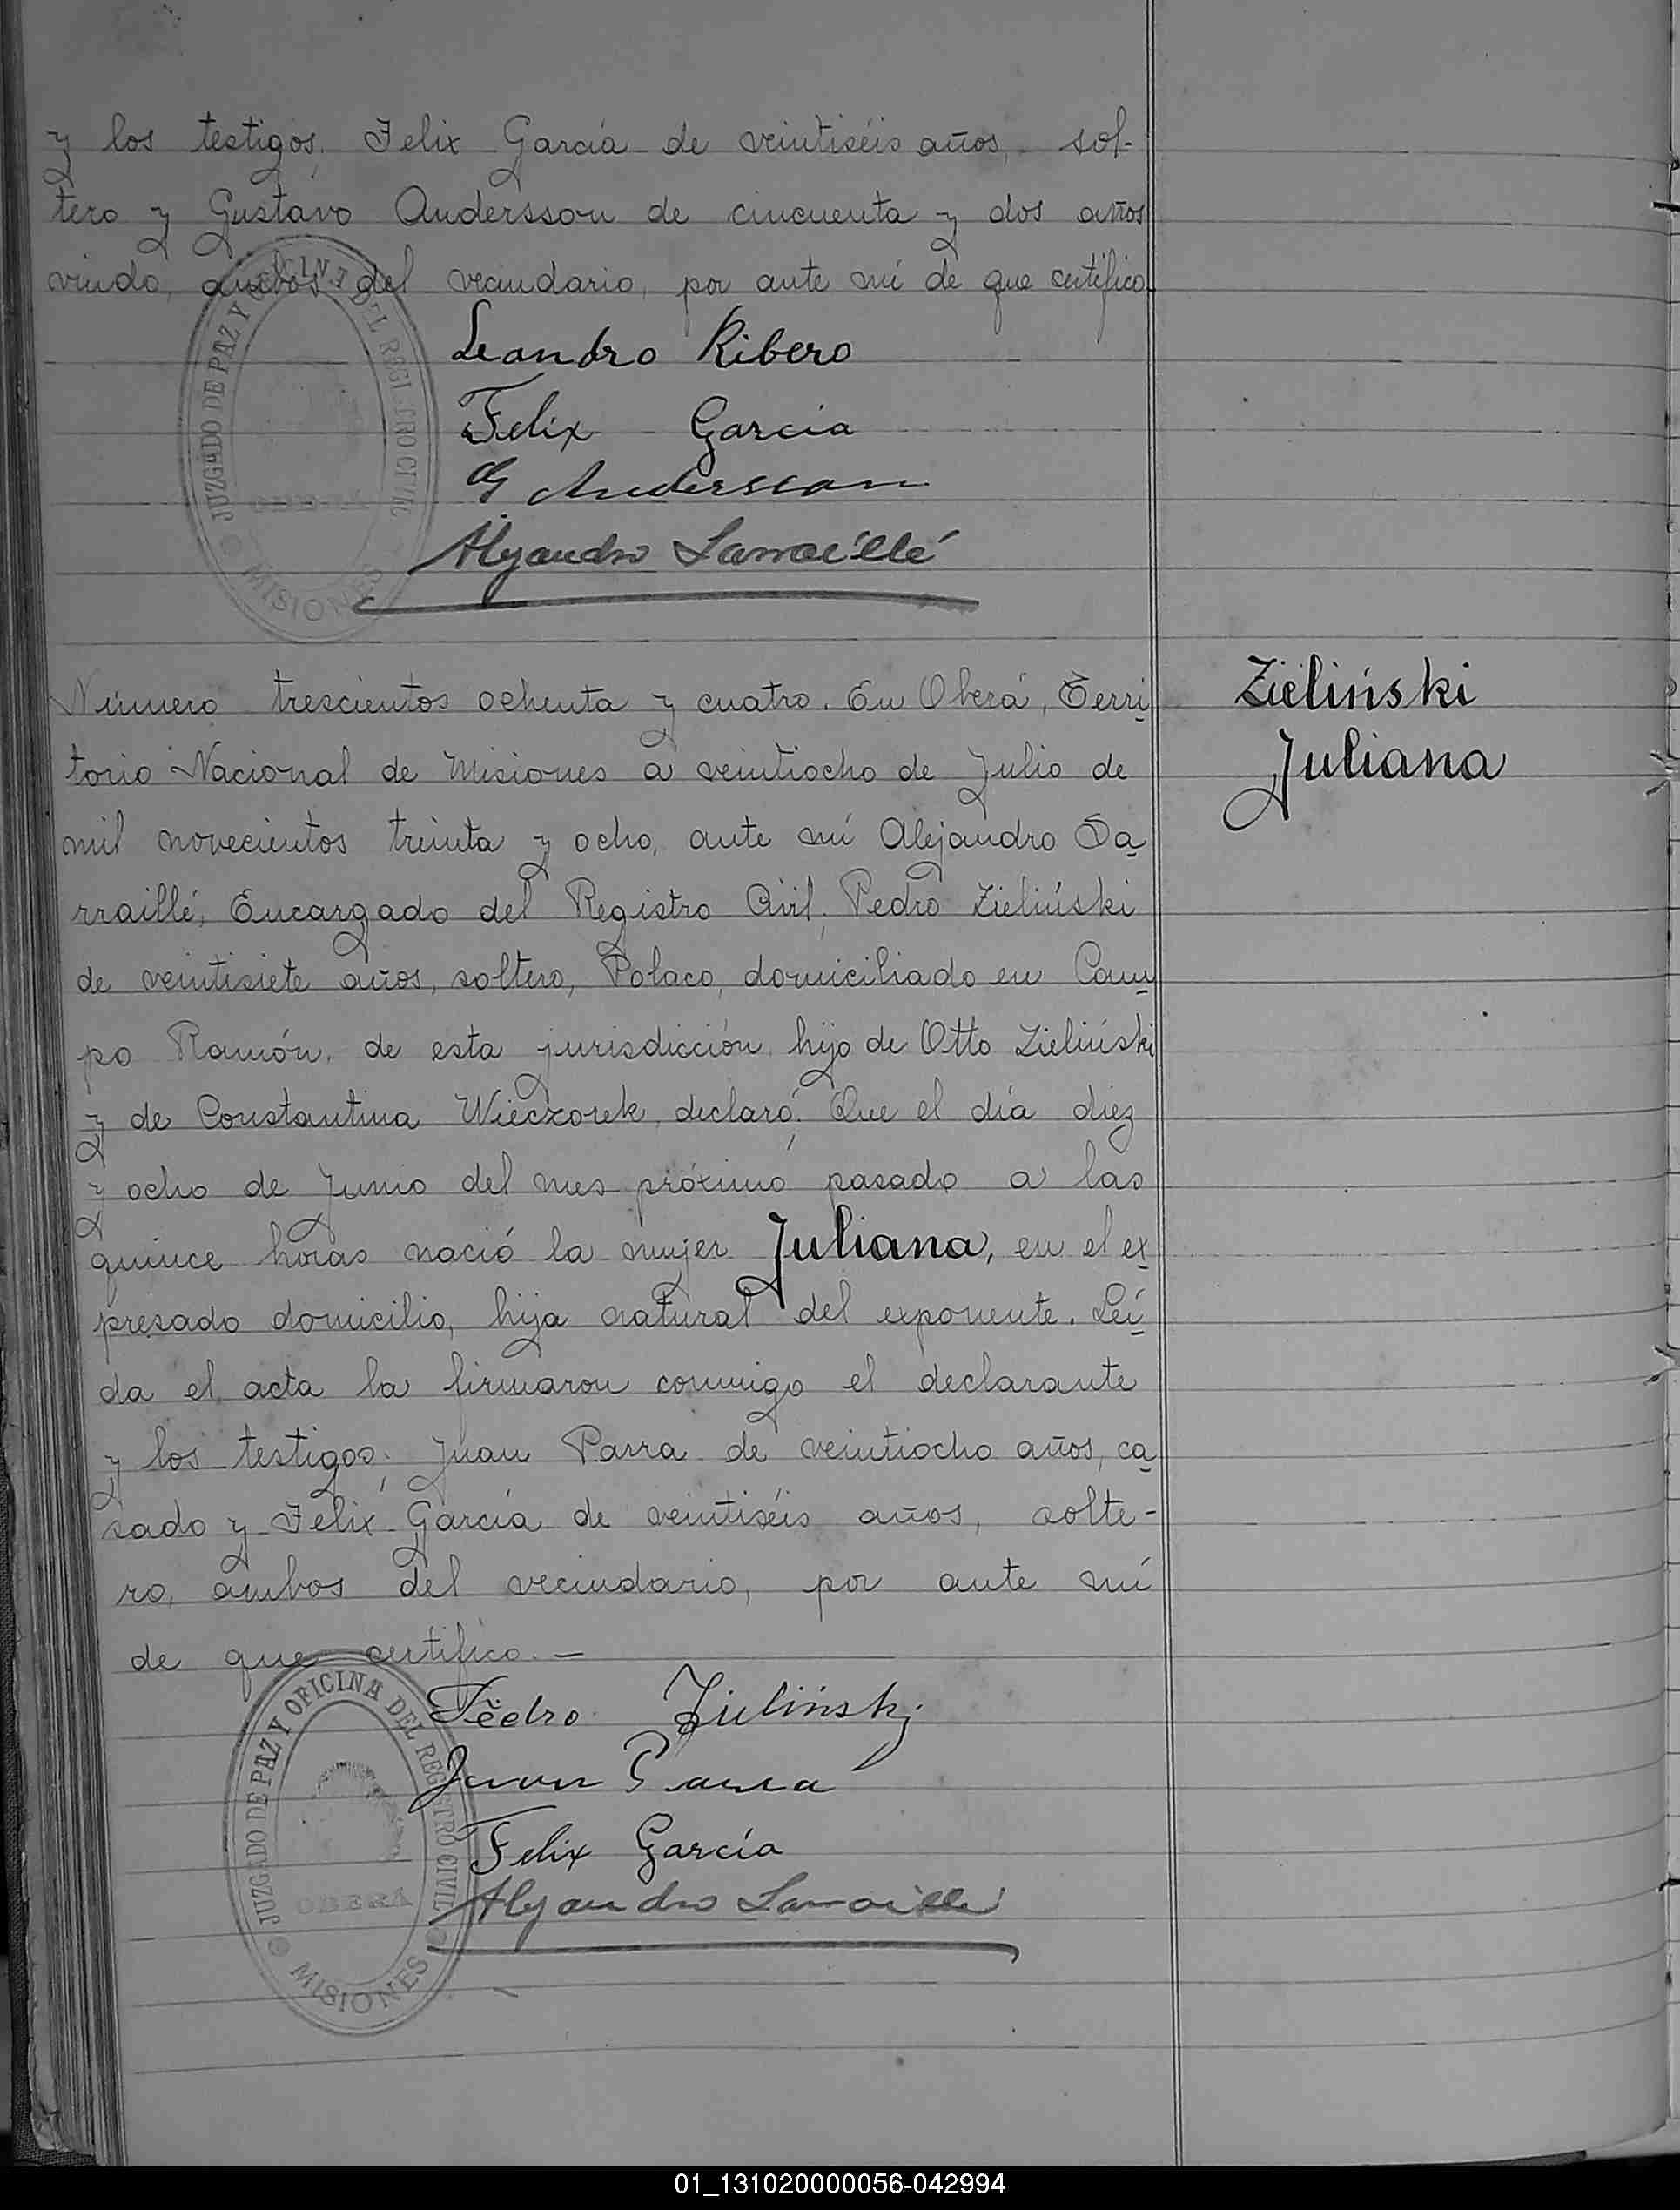 y los testigos. Felix García de veintiséis años, sol-
tero y Gustavo Andersson de cincuenta y dos años
viudo, ambos del vecindario, por ante mí de que certifico.
Leandro Ribero
Felix García
G Andersson
Alejandro Sarraillé
JUZGADO DE PAZ Y OFICINA DEL REGISTRO CIVIL
MISIONES
Número trescientos ochenta y cuatro. En Oberá, Terri
torio Nacional de Misiones a veintiocho de Julio de
mil novecientos treinta y ocho, ante mí Alejandro Sa
rraillé, Encargado del Registro Civil, Pedro Zieliński
de veintisiete años, soltero, Polaco, domiciliado en Cam
po Ramón, de esta jurisdicción, hijo de Otto Zieliński
y de Constantina Wieczorek, declaró: Que el día diez
y ocho de Junio del mes próximo pasado a las
quince horas nació la mujer Juliana, en el ex
presado domicilio, hija natural del exponente. Leí
da el acta la firmaron conmigo el declarante
y los testigos: Juan Parra de veintiocho años, ca
sado y Felix García de veintiséis años, solte-
ro, ambos del vecindario, por ante mí
de que certifico.—
Pedro Zieliński
Juan Parra
Felix García
Alejandro Sarraillé
JUZGADO DE PAZ Y OFICINA DEL REGISTRO CIVIL
OBERÁ
MISIONES
Zieliński
Juliana
01_131020000056-042994